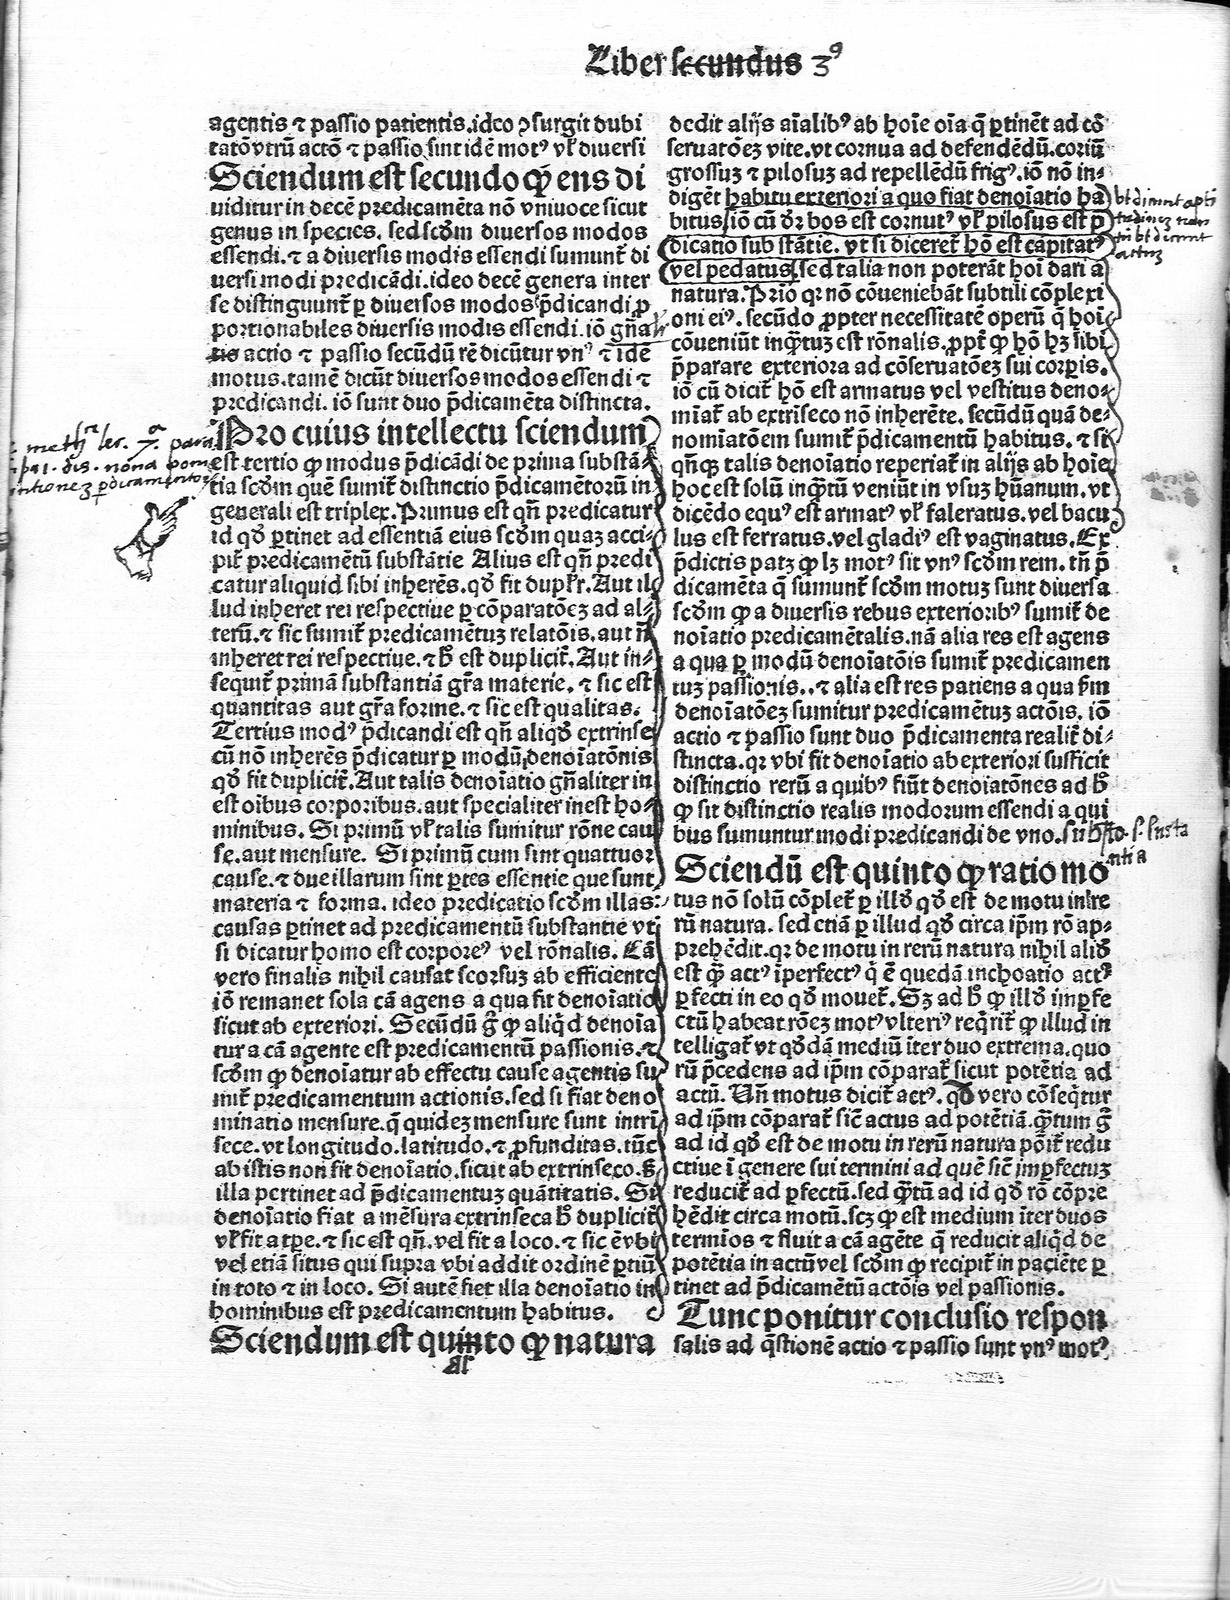 Liber secundus 3⁹
agentis ⁊ passio patientis.ideo ꝯsurgit dubi
tatōvtrū actō ⁊ passio sint idē motꝰ vl̓ diuersi
Sciendum est secundo ꝙ ens di
uiditur in decē predicamēta nō vniuoce sicut
genus in species. sed scd̓m diuersos modos
essendi.⁊ a diuersis modis essendi sumunt̄ di
uersi modi predicādi.ideo decē genera inter
se distinguunt̄ ꝑ diuersos modos p̄dicandi ꝓ
portionabiles diuersis modis essendi.iō gn̄a
actio ⁊ passio secūdū rē dicūtur vnꝰ ⁊ idē
motus.tamē dicūt diuersos modos essendi ⁊
predicandi. iō sunt duo p̄dicamēta distincta.
Pro cuius intellectu sciendum
est tertio ꝙ modus p̄dicādi de prima substā⸗
tia scd̓m quē sumit̄ distinctio p̄dicamētorū in
generali est triplex.Primus est qn̄ predicatur
id qd̓ ꝑtinet ad essentiā eius scd̓m quaꝫ acci⸗
pit̄ predicamētū substātie Alius est qn̄ predi
catur aliquid sibi inherēs.qd̓ fit dupl̓r.Aut il
lud inheret rei respectiue ꝑ cōparatōeꝫ ad al⸗
terū.⁊ sic sumit̄ predicamētuꝫ relatōis.aut n̄
inheret rei respectiue.⁊ h̓ est duplicit̄.Aut in⸗
sequit̄ primā substantiā gr̄a materie.⁊ sic est
quantitas aut gr̄a forme.⁊ sic est qualitas.
Tertius modꝰ p̄dicandi est qn̄ aliqd̓ extrinse
cū nō inherēs p̄dicatur ꝑ modū denoīatōnis
qd̓ fit duplicit̄.Aut talis denoīatio gn̄aliter in
est oībus corporibus.aut specialiter inest ho⸗
minibus. Si primū vl̓ talis sumitur rōne cau
se.aut mensure. Si primū cum sint quattuor
cause.⁊ due illarum sint ꝑtes essentie que sunt
materia ⁊ forma. ideo predicatio scd̓m illas
causas ꝑtinet ad predicamētū substantie vt
si dicatur homo est corporeꝰ vel rōnalis. Cā
vero finalis nihil causat scorsuꝫ ab efficiente
iō remanet sola cā agens a qua fit denoīatio
sicut ab exteriori. Secūdū ḡ ꝙ aliq̄d denoīa
tur a cā agente est predicamentū passionis.⁊
scd̓m ꝙ denoīatur ab effectu cause agentis su
mit̄ predicamentum actionis.sed si fiat deno
minatio mensure.q̄ quideꝫ mensure sunt intrī
sece.vt longitudo.latitudo.⁊ ꝓfunditas.tūc
ab istis non fit denoīatio.sicut ab extrinseco.ſꝫ
illa pertinet ad p̄dicamentuꝫ quātitatis. Si
denoīatio fiat a mēsura extrinseca h̓ duplicit̄
vl̓ fit a tꝑe.⁊ sic est qn̄.vel fit a loco.⁊ sic ē vbi
vel etiā situs qui supra vbi addit ordinē ꝑtiū
in toto ⁊ in loco. Si autē fiet illa denoīatio in
hominibus est predicamentum habitus.
Sciendum est quinto ꝙ natura
dedit alijs aīalibꝰ ab hoīe oīa q̄ ꝑtinēt ad cō
seruatōeꝫ vite.vt cornua ad defendēdū.coriū
grossuꝫ ⁊ pilosuꝫ ad repellēdū frigꝰ.iō nō in⸗
digēt habitu exteriori a quo fiat denoīatio ha
bitus iō cū dr̄ bos est cornutꝰ vl̓ pilosus est p̄
dicatio sub stātie. vt si diceret̄ hō est capitatꝰ
vel pedatus.sed talia non poterāt hoī dari a
natura.Prīo qr nō cōueniebāt subtili cōplexi
oni eiꝰ. secūdo ꝓpter necessitatē operū q̄ hoī
cōueniūt inq̄tuꝫ est rōnalis.ꝓpt̄ ꝙ hō hꝫ sibi
p̄parare exteriora ad cōseruatōeꝫ sui corꝑis.
iō cū dicit̄ hō est armatus vel vestitus deno⸗
miat̄ ab extrinseco nō inherēte. secūdū quā de⸗
nomiatōem sumit̄ p̄dicamentū habitus. ⁊ si
qn̄qꝫ talis denoīatio reperiat̄ in alijs ab hoīe
hoc est solū inq̄tū veniūt in vsuꝫ hūanum. vt
dicēdo equꝰ est armatꝰ vl̓ faleratus. vel bacu
lus est ferratus.vel gladiꝰ est vaginatus. Ex
p̄dictis patꝫ ꝙ lꝫ motꝰ sit vnꝰ scd̓m rem. tn̄ p̄
dicamēta q̄ sumunt̄ scd̓m motuꝫ sunt diuersa
scd̓m ꝙ a diuersis rebus exterioribꝰ sumit̄ de
noīatio predicamētalis.nā alia res est agens
a qua ꝑ modū denoīatōis sumit̄ predicamen
tuꝫ passionis..⁊ alia est res patiens a qua
denoīatōeꝫ sumitur predicamētuꝫ actōis. iō
actio ⁊ passio sunt duo p̄dicamenta realit̄ di⸗
stincta.qr vbi fit denoīatio ab exteriori sufficit
distinctio rerū a quibꝰ fiūt denoīatōnes ad h̓
ꝙ sit distinctio realis modorum essendi a qui
bus sumuntur modi predicandi de vno.
Sciendū est quinto ꝙ ratio mo
tus nō solū cōplet̄ ꝑ illd̓ qd̓ est de motu in re
rū natura. sed etiā ꝑ illud qd̓ circa ip̄m rō ap⸗
prehēdit.qr de motu in rerū natura nihil alid̓
est q̄ actꝰ īperfectꝰ q̄ ē quedā inchoatio actꝰ
ꝑfecti in eo qd̓ mouet̄. Sꝫ ad h̓ ꝙ illd̓ imꝑfe
ctū habeat rōeꝫ motꝰ vlteriꝰ req̄rit̄ ꝙ illud in
telligat̄ vt qd̓dā mediū īter duo extrema.quo
rū p̄cedens ad ip̄m cōparat̄ sicut potētia ad
actū. Vn̄ motus dicit̄ actꝰ. qd̓ vero cōseq̄tur
ad ip̄m cōparat̄ sic̄ actus ad potētiā.q̄tum ḡ
ad id qd̓ est de motu in rerū natura pōit̄ redu
ctiue ī genere sui termini ad quē sic̄ imꝑfectuꝫ
reducit̄ ad ꝑfectū.sed q̄tū ad id qd̓ rō cōpre
hēdit circa motū.scꝫ ꝙ est medium īter duos
termīos ⁊ fluit a cā agēte q̄ reducit aliq̄d de
potētia in actū vel scd̓m ꝙ recipit̄ in paciēte ꝑ
tinet ad p̄dicamētū actōis vel passionis.
Tunc ponitur conclusio respon
salis ad q̄stionē actio ⁊ passio sunt vnꝰ motꝰ